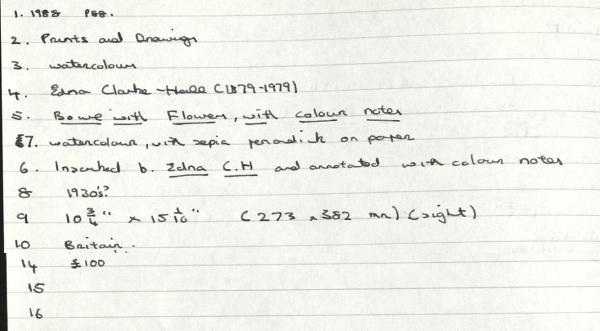 1. 1988 P88.
2. Prints and Drawings
3. watercolour
4. Edna Clarke-Hall (1879-1979)
5. Bowl with Flowers, with colour notes
7. watercolour, with sepia pen and ink on paper
6. Inscribed b. Edna C.H and annotated with colour notes
8 1930's?
9 10 3/4" x 15 1/16" (273 x 382 mm) (sight)
10 Britain.
14 £100
15
16